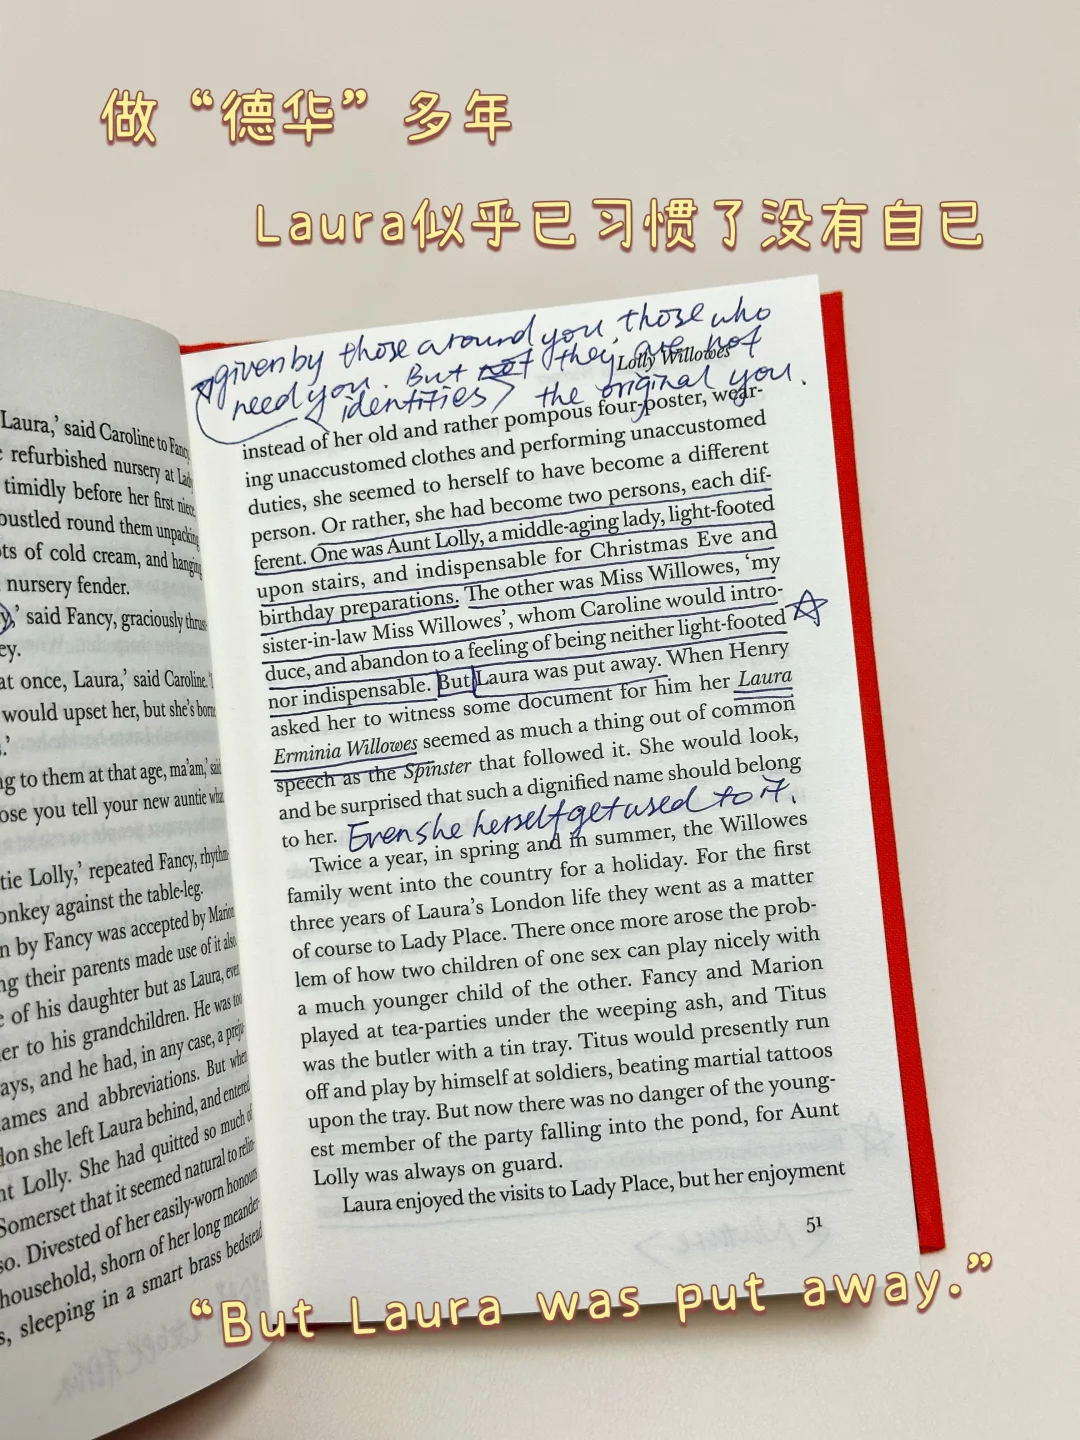 做“德华”多年
Laura似乎已习惯了没有自已
Laura,’ said Caroline to Fancy
refurbished nursery at Lady
timidly before her first niece
bustled round them unpacking
ts of cold cream, and hanging
nursery fender.
,’ said Fancy, graciously thrus-
ey.
at once, Laura,’ said Caroline. ‘I
would upset her, but she’s born
.’
ng to them at that age, ma’am,’ said
ose you tell your new auntie what
tie Lolly,’ repeated Fancy, rhythm-
onkey against the table-leg.
n by Fancy was accepted by Marion
ng their parents made use of it also
of his daughter but as Laura, ever
er to his grandchildren. He was too
ays, and he had, in any case, a preju-
ames and abbreviations. But when
don she left Laura behind, and entered
nt Lolly. She had quitted so much of
Somerset that it seemed natural to relin-
so. Divested of her easily-worn honours
household, shorn of her long meander-
s, sleeping in a smart brass bedstead
given by those around you, those who
need you. But not they are not
identities the original you.
Lolly Willowes
instead of her old and rather pompous four-poster, wear-
ing unaccustomed clothes and performing unaccustomed
duties, she seemed to herself to have become a different
person. Or rather, she had become two persons, each dif-
ferent. One was Aunt Lolly, a middle-aging lady, light-footed
upon stairs, and indispensable for Christmas Eve and
birthday preparations. The other was Miss Willowes, ‘my
sister-in-law Miss Willowes’, whom Caroline would intro-
duce, and abandon to a feeling of being neither light-footed
nor indispensable. But Laura was put away. When Henry
asked her to witness some document for him her Laura
Erminia Willowes seemed as much a thing out of common
speech as the Spinster that followed it. She would look,
and be surprised that such a dignified name should belong
to her. Even she herself get used to it.
Twice a year, in spring and in summer, the Willowes
family went into the country for a holiday. For the first
three years of Laura’s London life they went as a matter
of course to Lady Place. There once more arose the prob-
lem of how two children of one sex can play nicely with
a much younger child of the other. Fancy and Marion
played at tea-parties under the weeping ash, and Titus
was the butler with a tin tray. Titus would presently run
off and play by himself at soldiers, beating martial tattoos
upon the tray. But now there was no danger of the young-
est member of the party falling into the pond, for Aunt
Lolly was always on guard.
Laura enjoyed the visits to Lady Place, but her enjoyment
51
“But Laura was put away.”